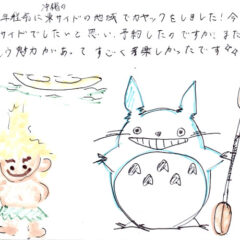 沖縄の
年程前に東サイドの地域でカヤックをしました！今
サイドでしたいと思い、予約したのですが、また
う魅力があって すごく楽しかったです